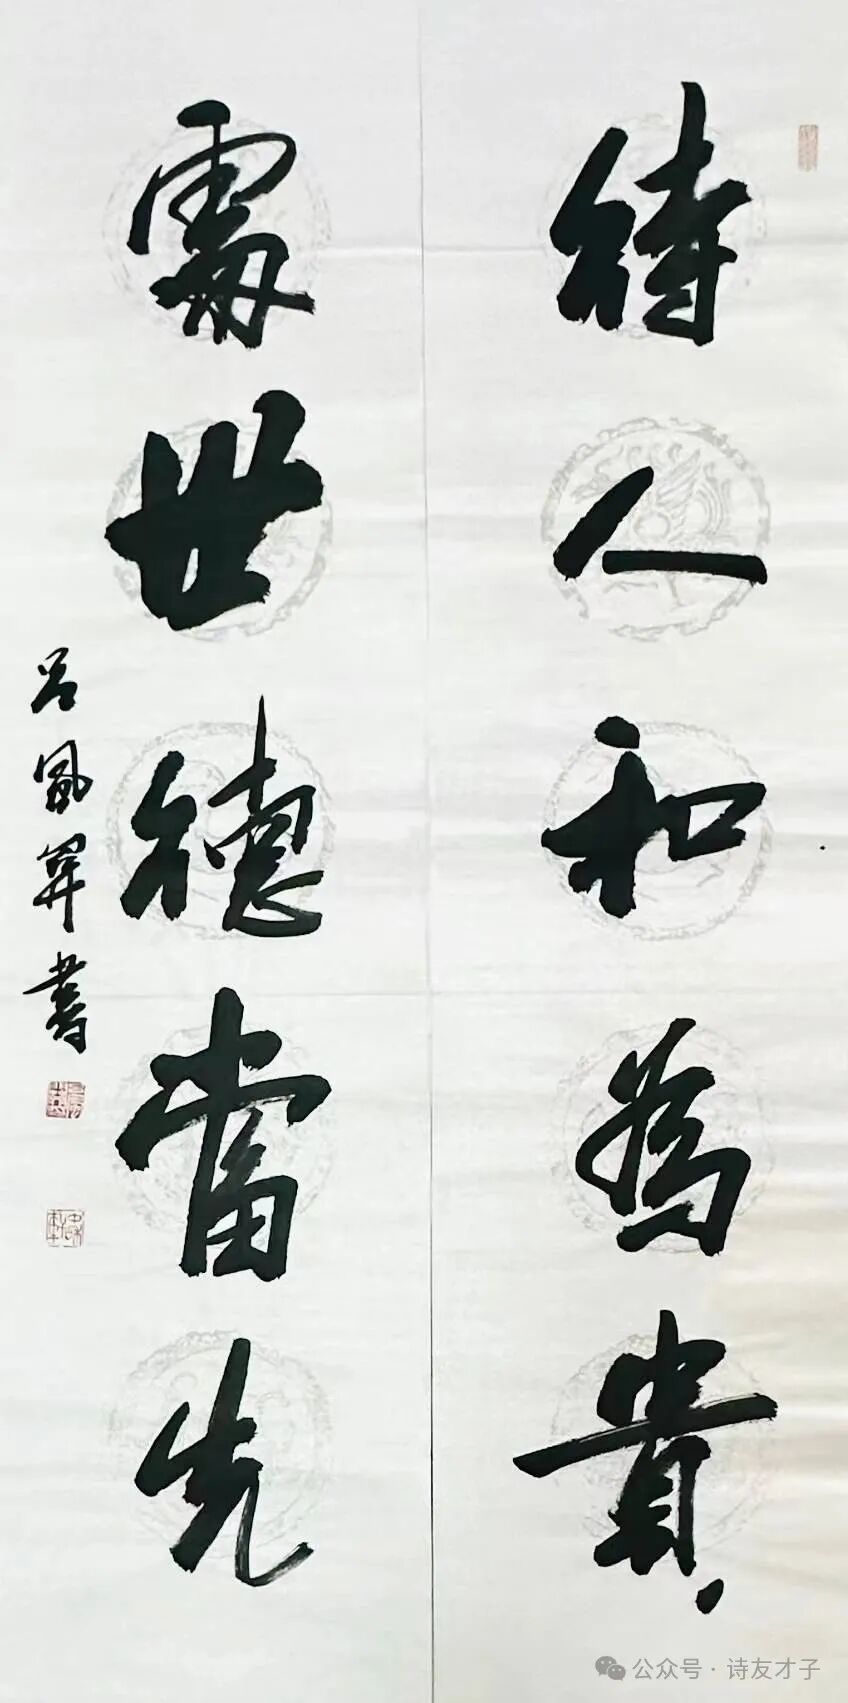 待人和為貴
處世德當先
吕風羿書
公众号·诗友才子